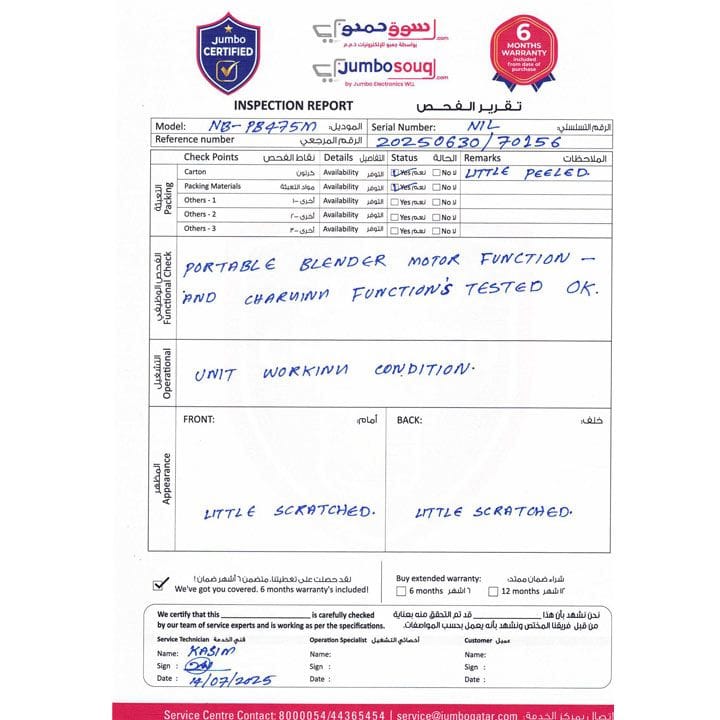 Jumbo
CERTIFIED
سوق جمبو.com
بواسطة جمبو للإلكترونيات ذ.م.م
jumbosouq.com
by Jumbo Electronics WLL
6
MONTHS
WARRANTY
included
from date of
purchase
INSPECTION REPORT تقرير الفحص
Model: NB-PB475M الموديل: Serial Number: NIL الرقم التسلسلي:
Reference number الرقم المرجعي 20250630/70156
Check Points نقاط الفحص Details التفاصيل Status الحالة Remarks الملاحظات
Packing التعبئة
Carton كرتون Availability التوفر Yes نعم No لا LITTLE PEELED.
Packing Materials مواد التعبئة Availability التوفر Yes نعم No لا
Others - 1 أخرى -١ Availability التوفر Yes نعم No لا
Others - 2 أخرى -٢ Availability التوفر Yes نعم No لا
Others - 3 أخرى -٣ Availability التوفر Yes نعم No لا
Functional Check الفحص الوظيفي
PORTABLE BLENDER MOTOR FUNCTION -
AND CHARGING FUNCTION'S TESTED OK.
Operational التشغيل
UNIT WORKING CONDITION.
Appearance المظهر
FRONT: أمام: BACK: خلف:
LITTLE SCRATCHED. LITTLE SCRATCHED.
لقد حصلت على تغطيتنا. متضمن ٦ أشهر ضمان!
We've got you covered. 6 months warranty's included!
Buy extended warranty: شراء ضمان ممتد:
6 months ٦ اشهر 12 months ١٢ شهر
We certify that this ____ is carefully checked
by our team of service experts and is working as per the specifications.
نحن نشهد بأن هذا ____ قد تم التحقق منه بعناية
من قبل فريقنا المختص ونشهد بأنه يعمل بحسب المواصفات.
Service Technician فني الخدمة Operation Specialist أخصائي التشغيل Customer عميل
Name: KASIM Name: Name:
Sign : Sign : Sign :
Date : 14/07/2025 Date : Date :
Service Centre Contact: 8000054/44365454 | service@jumboqatar.com اتصال بمركز الخدمة